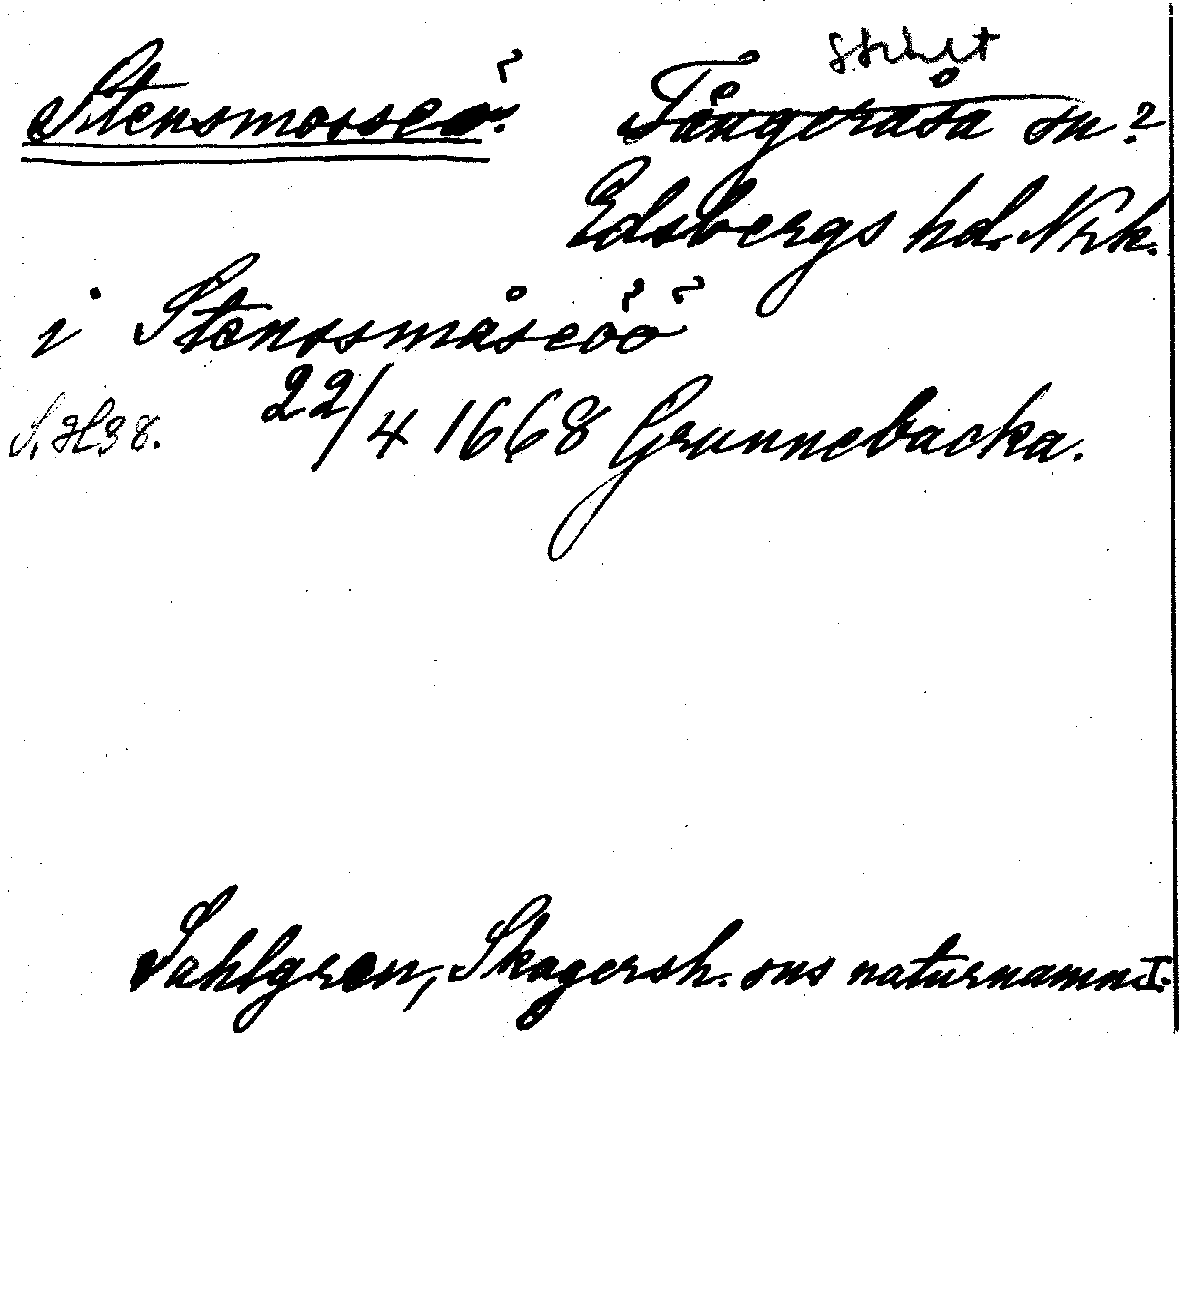 Stensmosseö?
Tångeråsa sn?
Edsbergs hd. Nrk.
i Stenssmåseöö
22/4 1668 Grunnebacka.
Sahlgren, Skagersh. sns naturnamn I.